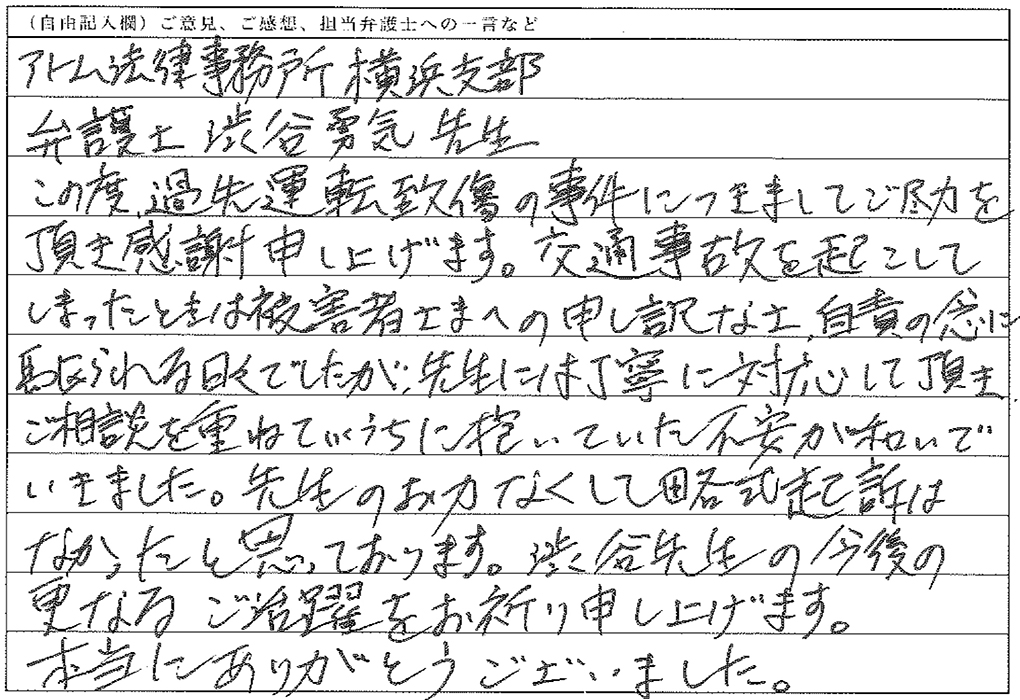 （自由記入欄）ご意見、ご感想、担当弁護士への一言など
アトム法律事務所 横浜支部
弁護士 渋谷勇気 先生
この度、過失運転致傷の事件につきましてご尽力を
頂き感謝申し上げます。交通事故を起こして
しまったときは被害者さまへの申し訳なさ、自責の念に
駆られる日々でしたが、先生には丁寧に対応して頂き、
ご相談を重ねていくうちに抱いていた不安が和いで
いきました。先生のお力なくして略式起訴は
なかったと思っております。渋谷先生の今後の
更なる ご活躍をお祈り申し上げます。
本当にありがとうございました。